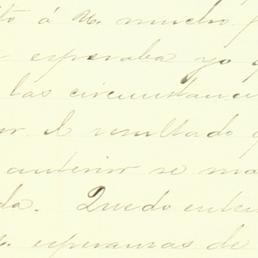 á V. mucho
esperaba yo
las circunstanc
el resultado
anterior se ma
da. Quedo ente
esperanzas de